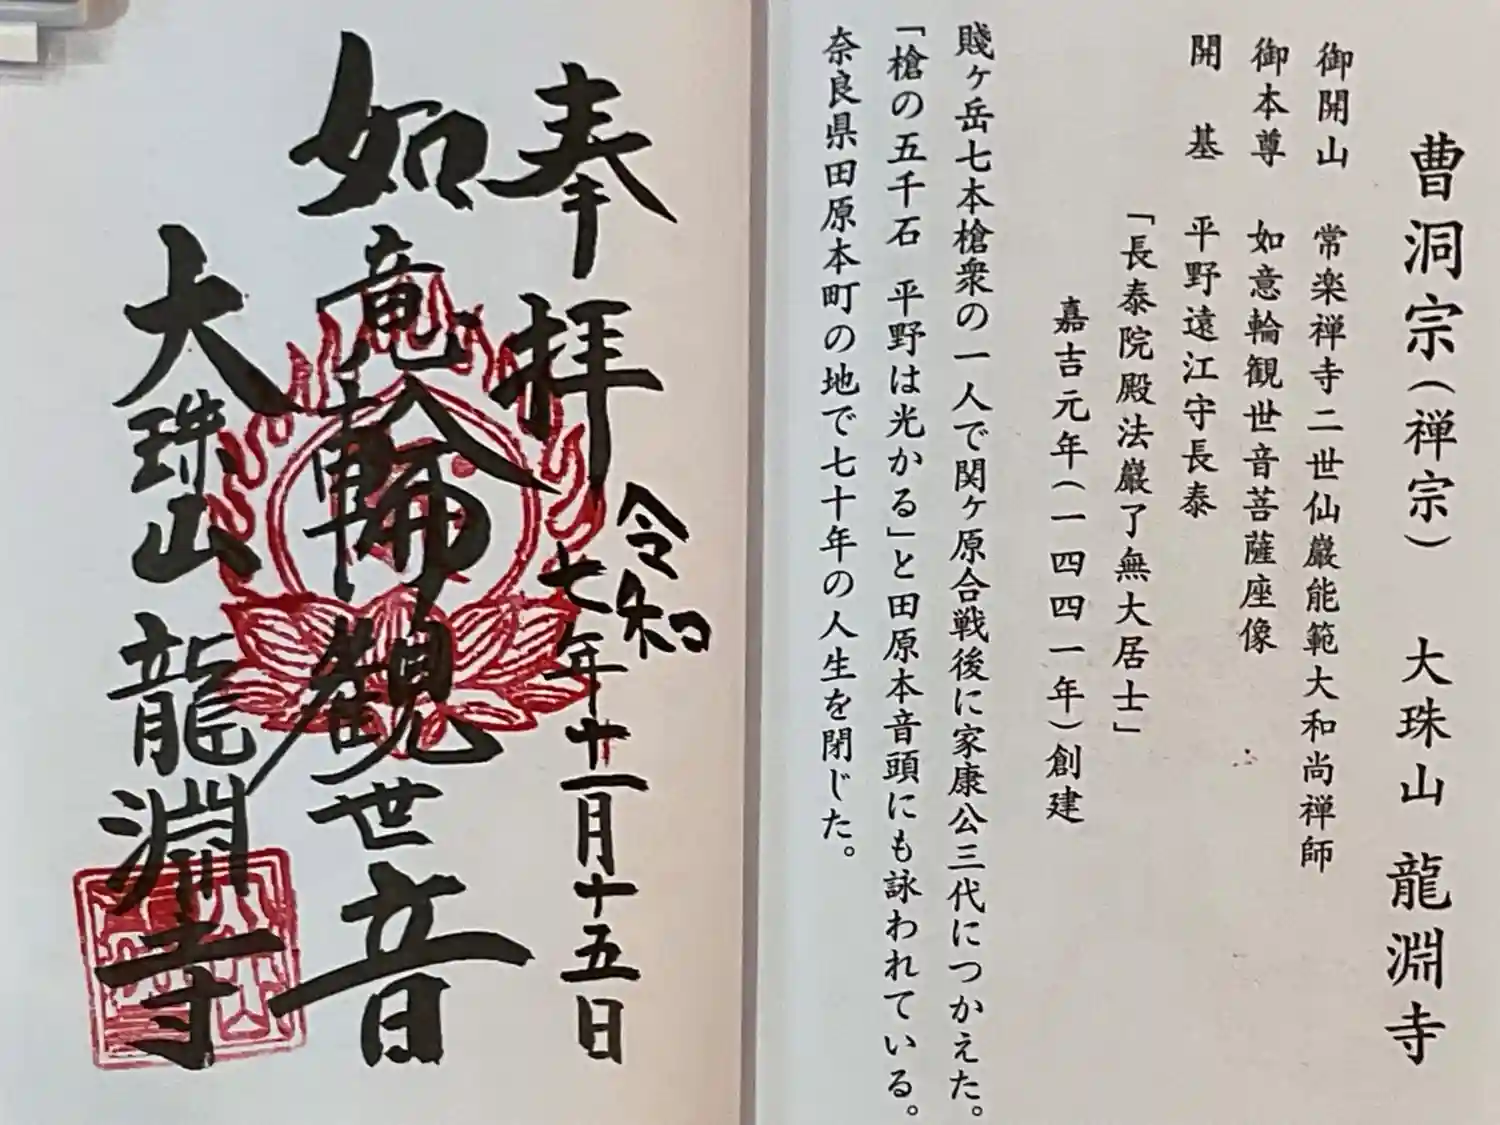 曹洞宗(禅宗) 大珠山 龍淵寺
御開山 常楽禅寺二世仙巌能範大和尚禅師
御本尊 如意輪観世音菩薩座像
開 基 平野遠江守長泰
「長泰院殿法巌了無大居士」
嘉吉元年(一四四一年)創建
賤ヶ岳七本槍衆の一人で関ヶ原合戦後に家康公三代につかえた。
「槍の五千石 平野は光かる」と田原本音頭にも詠われている。
奈良県田原本町の地で七十年の人生を閉じた。
奉拝
令和
七年十一月十五日
如意輪観世音
大珠山龍淵寺